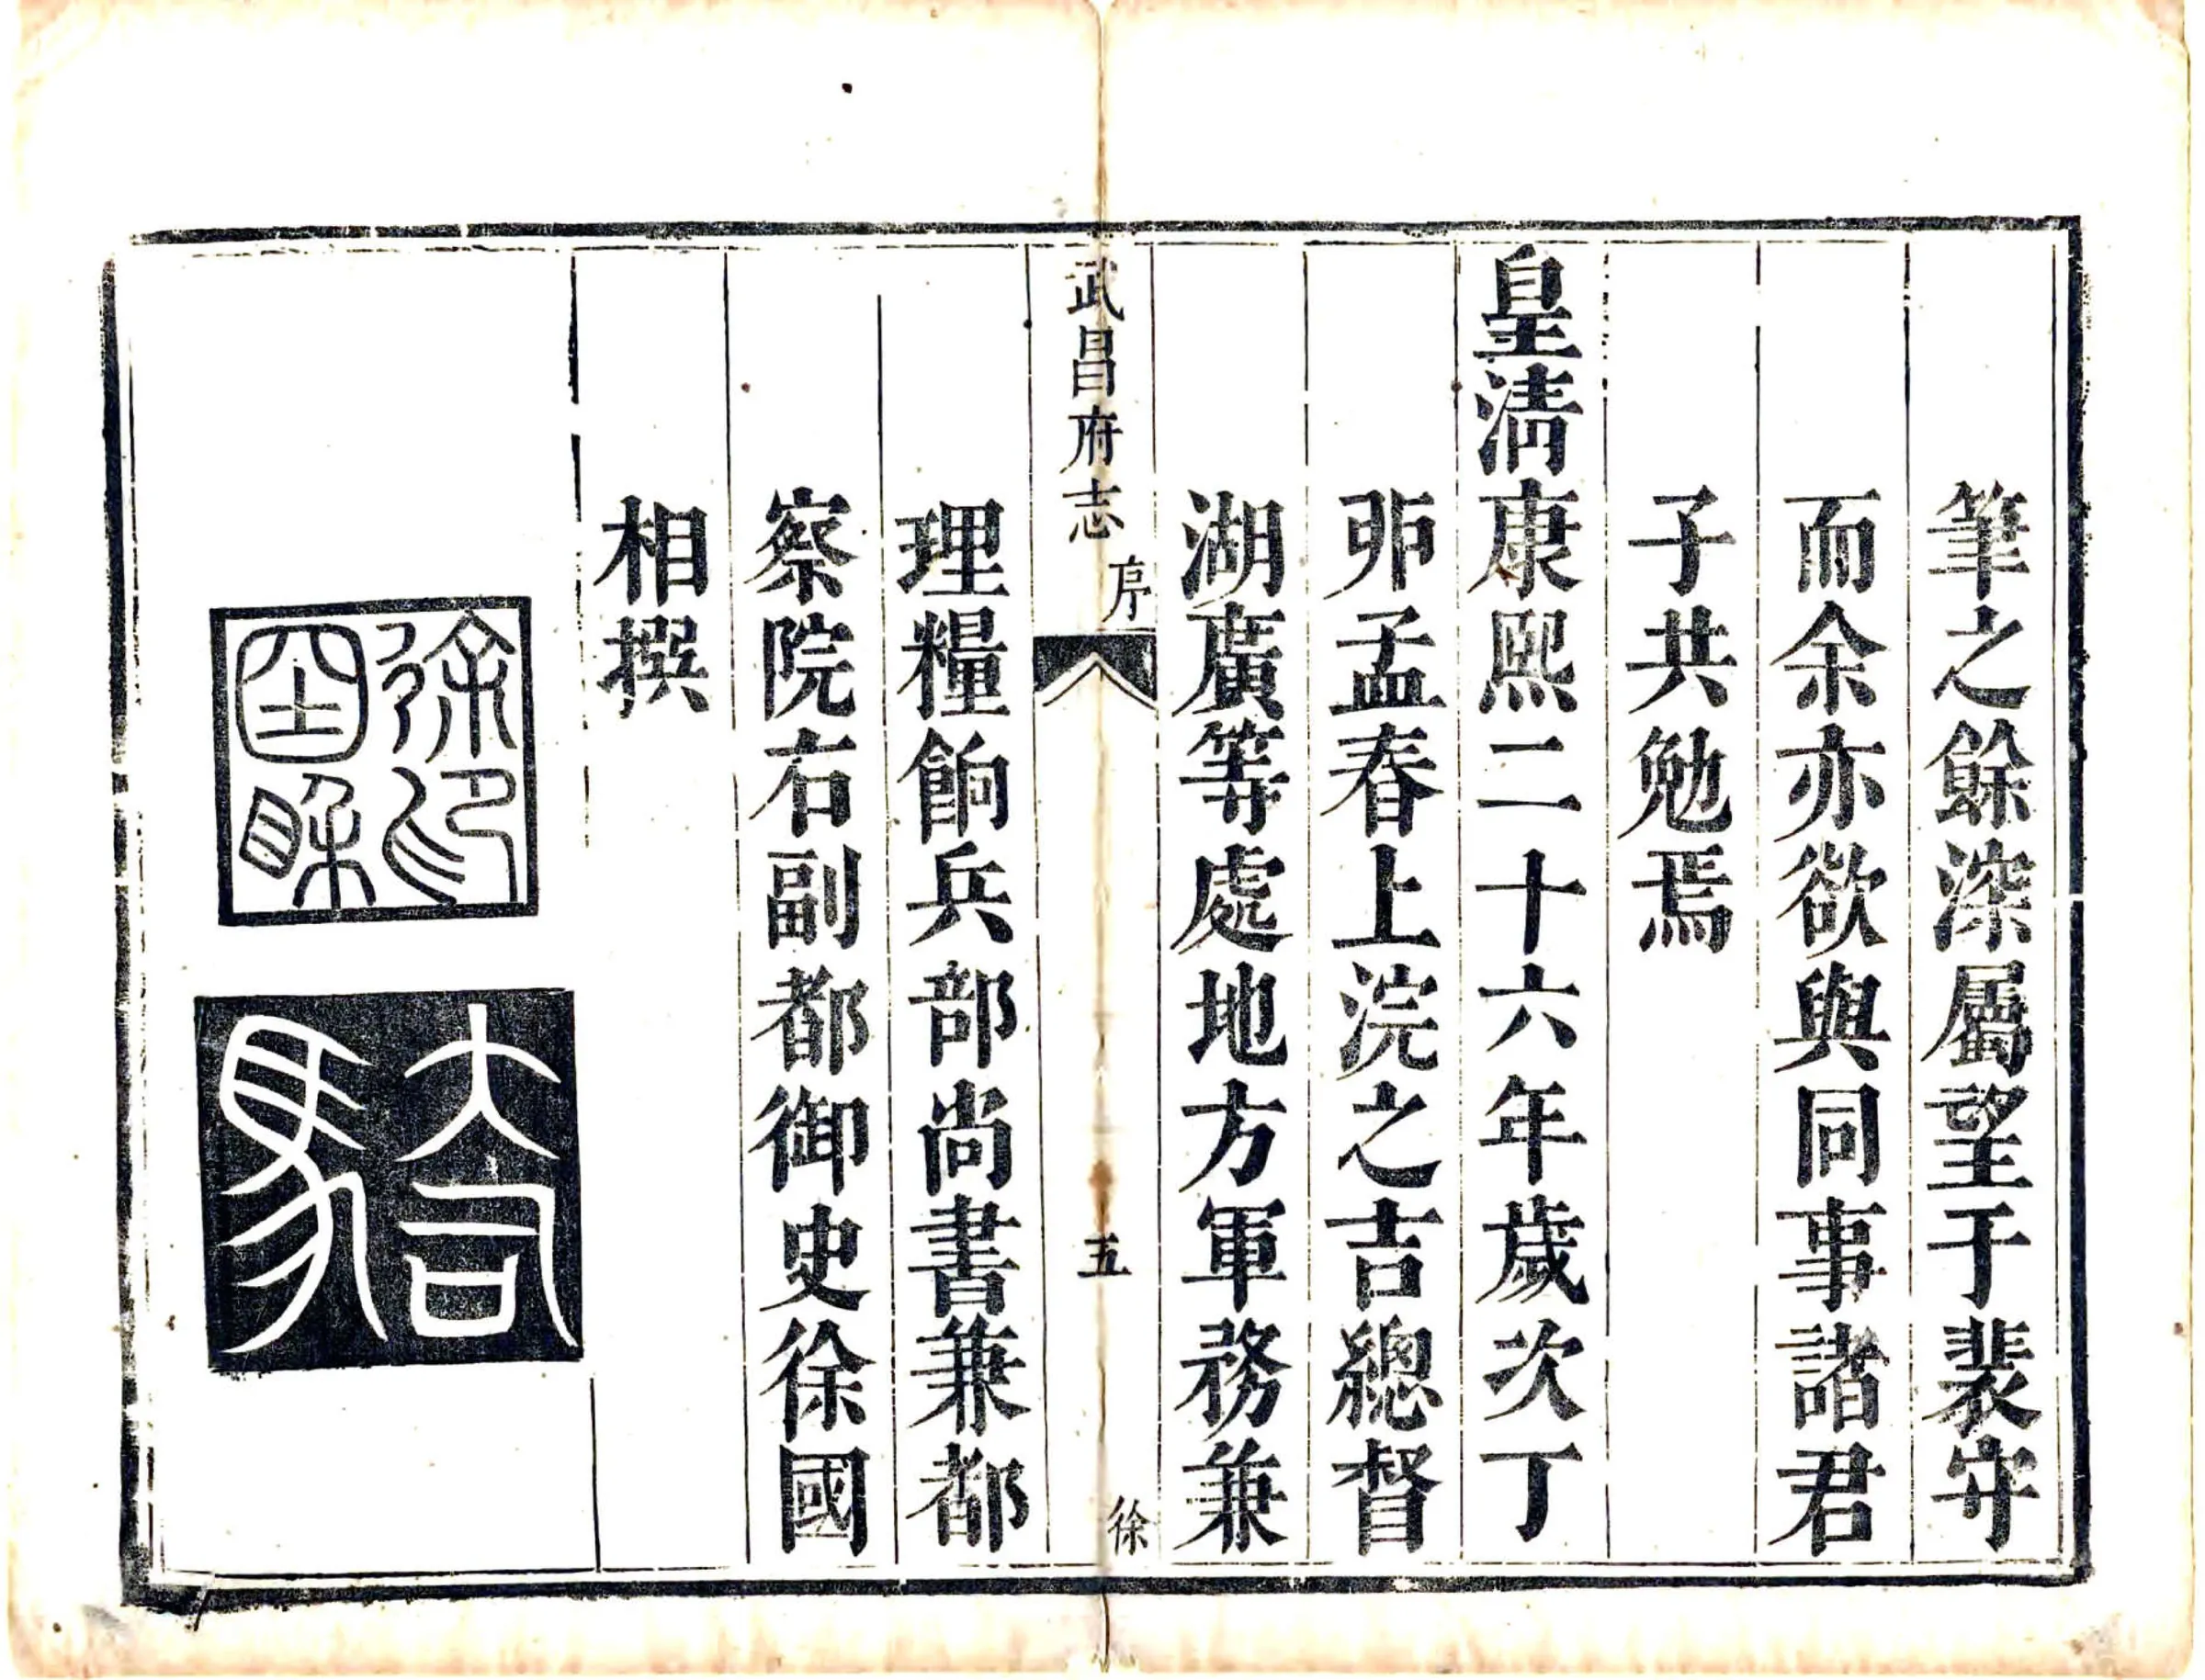 筆之餘深屬望于裴守
而余亦欲與同事諸君
子共勉焉
皇清康熙二十六年歲次丁
卯孟春上浣之吉總督
湖廣等處地方軍務兼
武昌府志 序 五 徐
理糧餉兵部尚書兼都
察院右副都御史徐國
相撰
徐國相印
大司馬